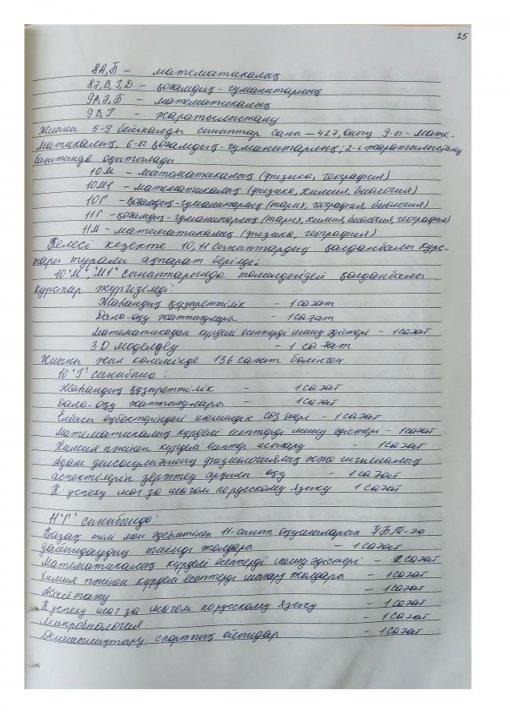 25
8А,Б – математикалық
8Г,В,Г,Д – қоғамдық-гуманитарлық
9А,Г,Б – математикалық
9В,Г – жаратылыстану
Жиыны 5-9 бейіналды сыныптар саны – 427, оның 9-ы-мате-
матикалық, 6-ы қоғамдық-гуманитарлық, 2-і жаратылыстану
бағытында оқытылады
10М – математикалық (физика, география)
10М1 – математикалық (физика, химия, биология)
10Г – қоғамдық-гуманитарлық (тарих, география, биология)
11Г – қоғамдық-гуманитарлық (тарих, химия, биология, география)
11М – математикалық (физика, география)
Келесі кезекте 10,11 сыныптардың қолданбалы курс-
тары туралы ақпарат берілді
10"М", "М1" сыныптарында төмендегідей қолданбалы
курстар жүргізіледі:
Жаһандық құзыреттілік – 1 сағат
Дала-оқу жаттығулары – 1 сағат
Математикадан күрделі есептерді шешу әдістері – 1 сағат
3D моделдеу – 1 сағат
Жиыны жыл көлемінде 136 сағат бөлінген.
10 "Г" сыныбына:
Жаһандық құзыреттілік – 1 сағат
Дала-оқу жаттығулары – 1 сағат
Елбасы еңбектеріндегі көсемдік сөз өнері – 1 сағат
Математикалық күрделі есептерді шешу әдістері – 1 сағат
Химия пәнінен күрделі есептер шығару – 1 сағат
Адам денсаулығының физиологиялық және гигиеналық
аспектілерін зерттеу арқылы оқу – 1 сағат
К успеху шаг за шагом по русскому языку 1 сағат
11"Г" сыныбында:
Қазақ тілі мен әдебиетінен 11-сынып оқушыларын ҰБТ-ға
дайындаудың тиімді жолдары 1 сағат
Математикалық күрделі есептерді шешу әдістері – 2 сағат
Химия пәнінен күрделі есептерді шығару жолдары – 1 сағат
– 1 сағат
К успеху шаг за шагом по русскому языку – 1 сағат
Микробиология – 1 сағат
спорттық ойындар – 1 сағат